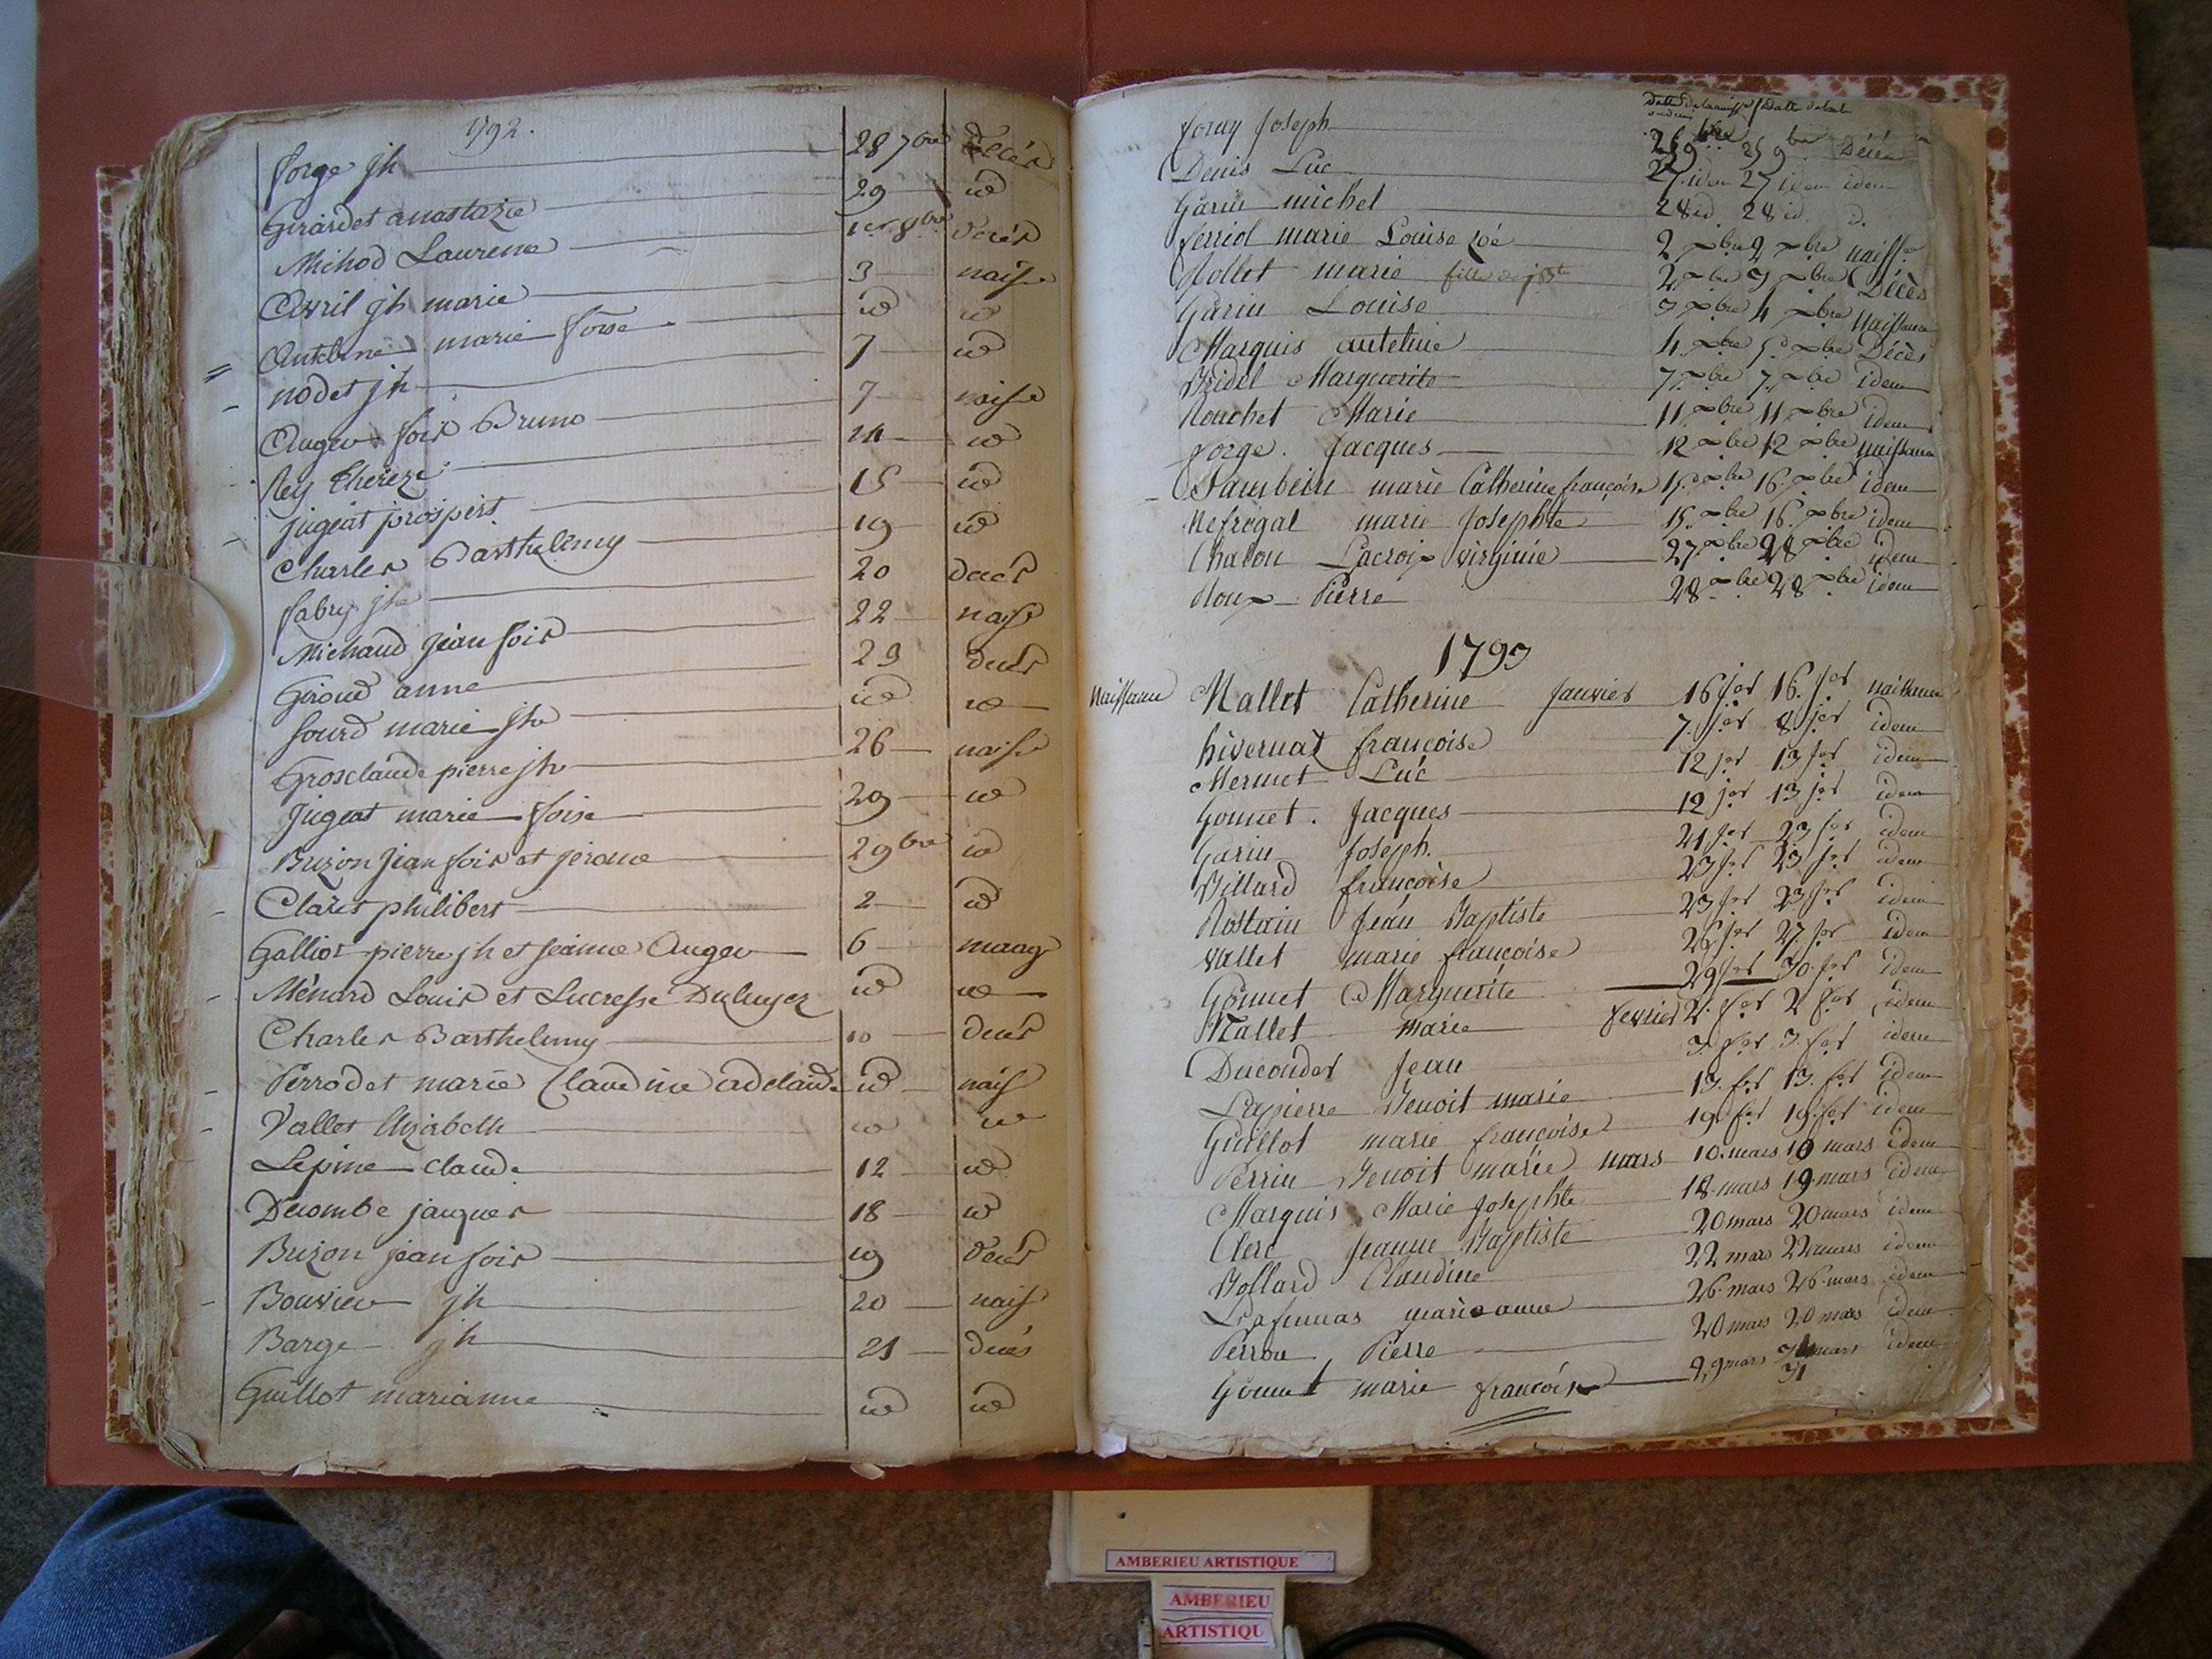 1792.
forge jh 28 7bre Décès
Girardet anastazie 29 id
Michod Laurence 1er 8bre décès
Avril jh marie 3 naisse
Antoine marie foise id id
nodet jh 7 id
Auger fois Bruno 7 naisse
Rey thereze 14 id
jugeat prospert 15 id
Charles Barthelemy 19 id
fabry jh 20 décès
Michaud jean fois 22 naisse
Giroud anne 23 décès
Sourd marie jhe id id
Grosclaude pierre jh 26 naisse
Jugeat marie foise 29 id
Buzon jean fois et jerome 2 9bre id
Claret philibert 2 id
Galliot pierre jh et jeanne Auger 6 maage
Ménard Louis et Lucresse id id
Charles Barthelemy 10 décès
Perrodet marie Claudine adelaide id naiss
Vallet Elizabeth id id
Lepine claude 12 id
Decombe jacques 18 id
Buzon jean fois 19 décès
Bouvier jh 20 naiss
Barge jh 21 décés
Guillot marianne id id
foray Joseph 25 9bre Décès
Denis Luc 27 idem 27 idem idem
Garin michel 28 id 28 id. id.
ferriol marie Louise zoé 2 xbre 2 xbre naisse
Rollet marie fille de 2 xbre 3 xbre Décès
Garin Louise 3 xbre 4 xbre Naissance
Marquis anteline 4 xbre 5 xbre Décès
Bridel Marguerite 7 xbre 7 xbre idem
Nouchet Marie 11 xbre 11 xbre idem
forge. Jacques 12 xbre 12 xbre naissance
Jambein marie Catherine françoise 15 xbre 16 xbre idem
Nefregal marie Josephte 15 xbre 16 xbre idem
Chalon Lacroix virginie 27 xbre 28 xbre idem
Roux Pierre 28 xbre 28 xbre idem
1793
Naissance Mallet Catherine Janvier 16 jer 16. jer naissance
hivernat françoise 7. jer 8 jer idem
Mermet Luc 12 jer 13 jer idem
Gonnet. Jacques 12 jer 13 jer idem
Garin Joseph. 21 jer 23 jer idem
Billard françoise 23 jer 23 jer idem
Rostain Jean Baptiste 23 jer 23 jer idem
vallet marie françoise 26 jer 27 jer idem
Gonnet Marguerite 29 jer 30. jer idem
Mallet marie fevrier 2. fer 2 fer idem
Ducouder Jean 3. fer 3. fer idem
Lapierre Benoit marie 13. fer 13. fer idem
Guillot marie françoise 19. fer 19. fer idem
Perrin Benoit marie mars 10. mars 10 mars idem
Marquis Marie Josephte 18. mars 19. mars idem
Clerc Jeanne Baptiste 20 mars 20 mars idem
Bollard Claudine 22 mars 22 mars idem
marieanne 26. mars 26. mars idem
Perron Pierre 20 mars 20 mars idem
Gonnet marie françoise 29 mars 31 mars idem
31
AMBERIEU ARTISTIQUE
AMBERIEU
ARTISTIQU